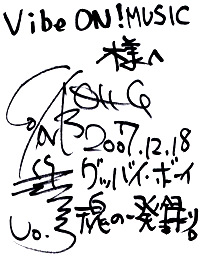 Vibe ON! MUSIC
様へ
2007.12.18
グッバイ・ボイ
魂の一発録り。
Vo.